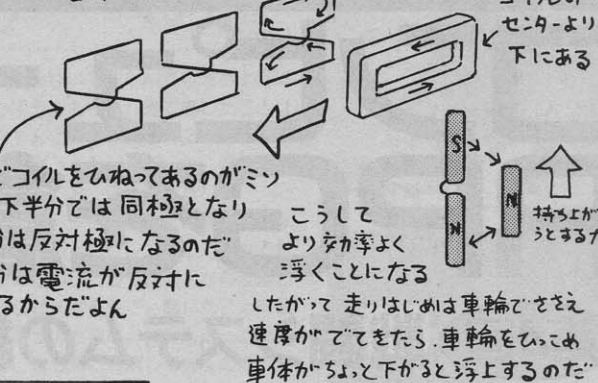 センターより
下にある
S
N
N
持ち上が
うとする力
でコイルをひねってあるのがミソ
下半分では同極となり
分は反対極になるのだ
分は電流が反対に
るからだよん
こうして
より効率よく
浮くことになる
したがって 走りはじめは車輪でささえ
速度がでてきたら、車輪をひっこめ
車体がちょっと下がると浮上するのだ